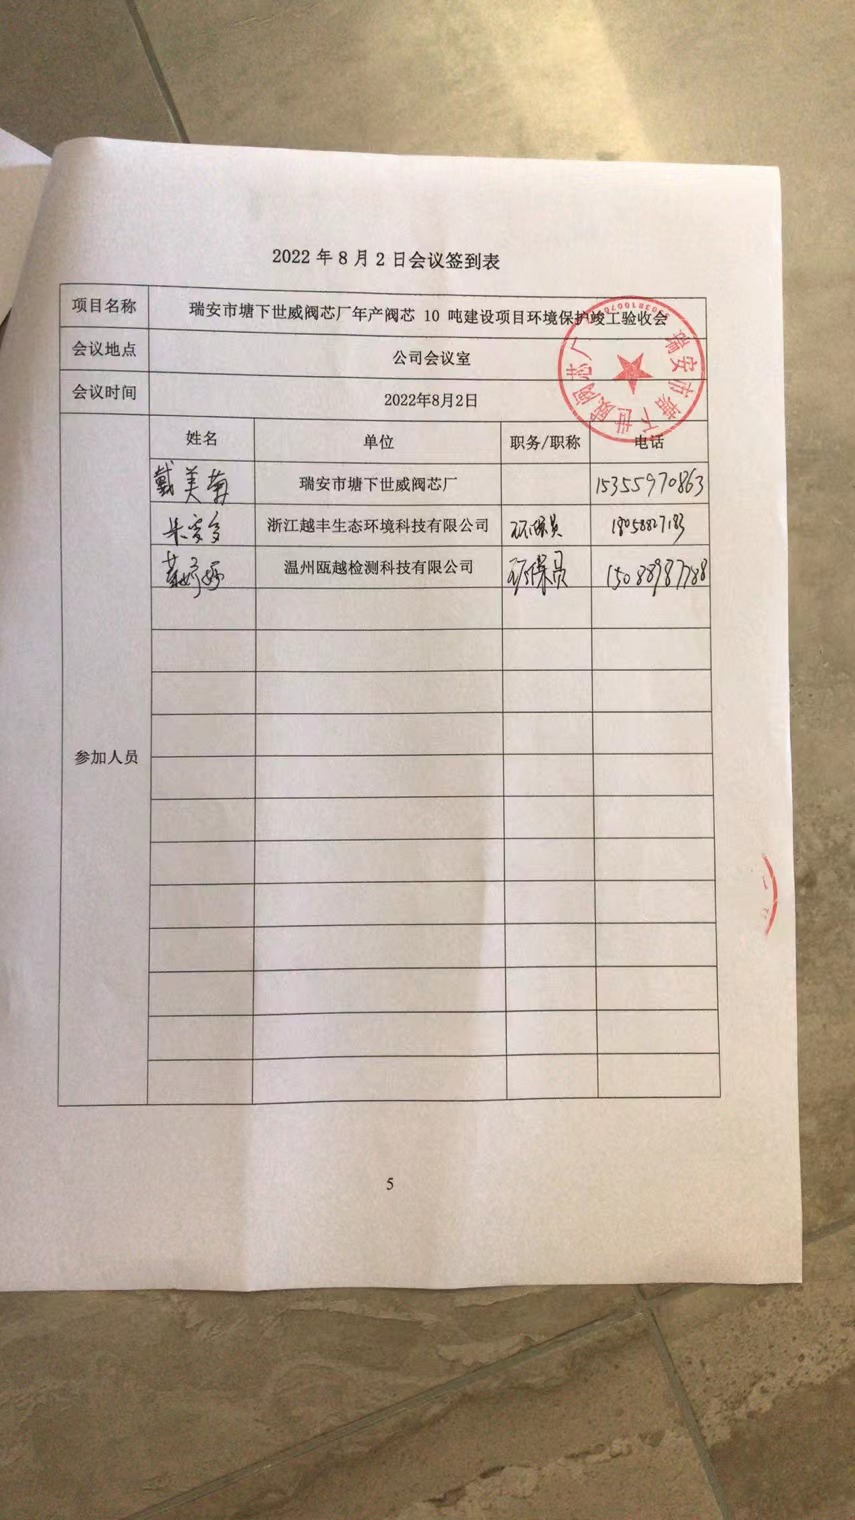 2022年8月2日会议签到表
项目名称 瑞安市塘下世威阀芯厂年产阀芯 10 吨建设项目环境保护竣工验收会
会议地点 公司会议室
会议时间 2022年8月2日
参加人员
姓名 单位 职务/职称 电话
戴美菊 瑞安市塘下世威阀芯厂 15355970863
浙江越丰生态环境科技有限公司 环保员 18058827183
温州瓯越检测科技有限公司 环保员 15088987788
瑞安市塘下世威阀芯厂
5